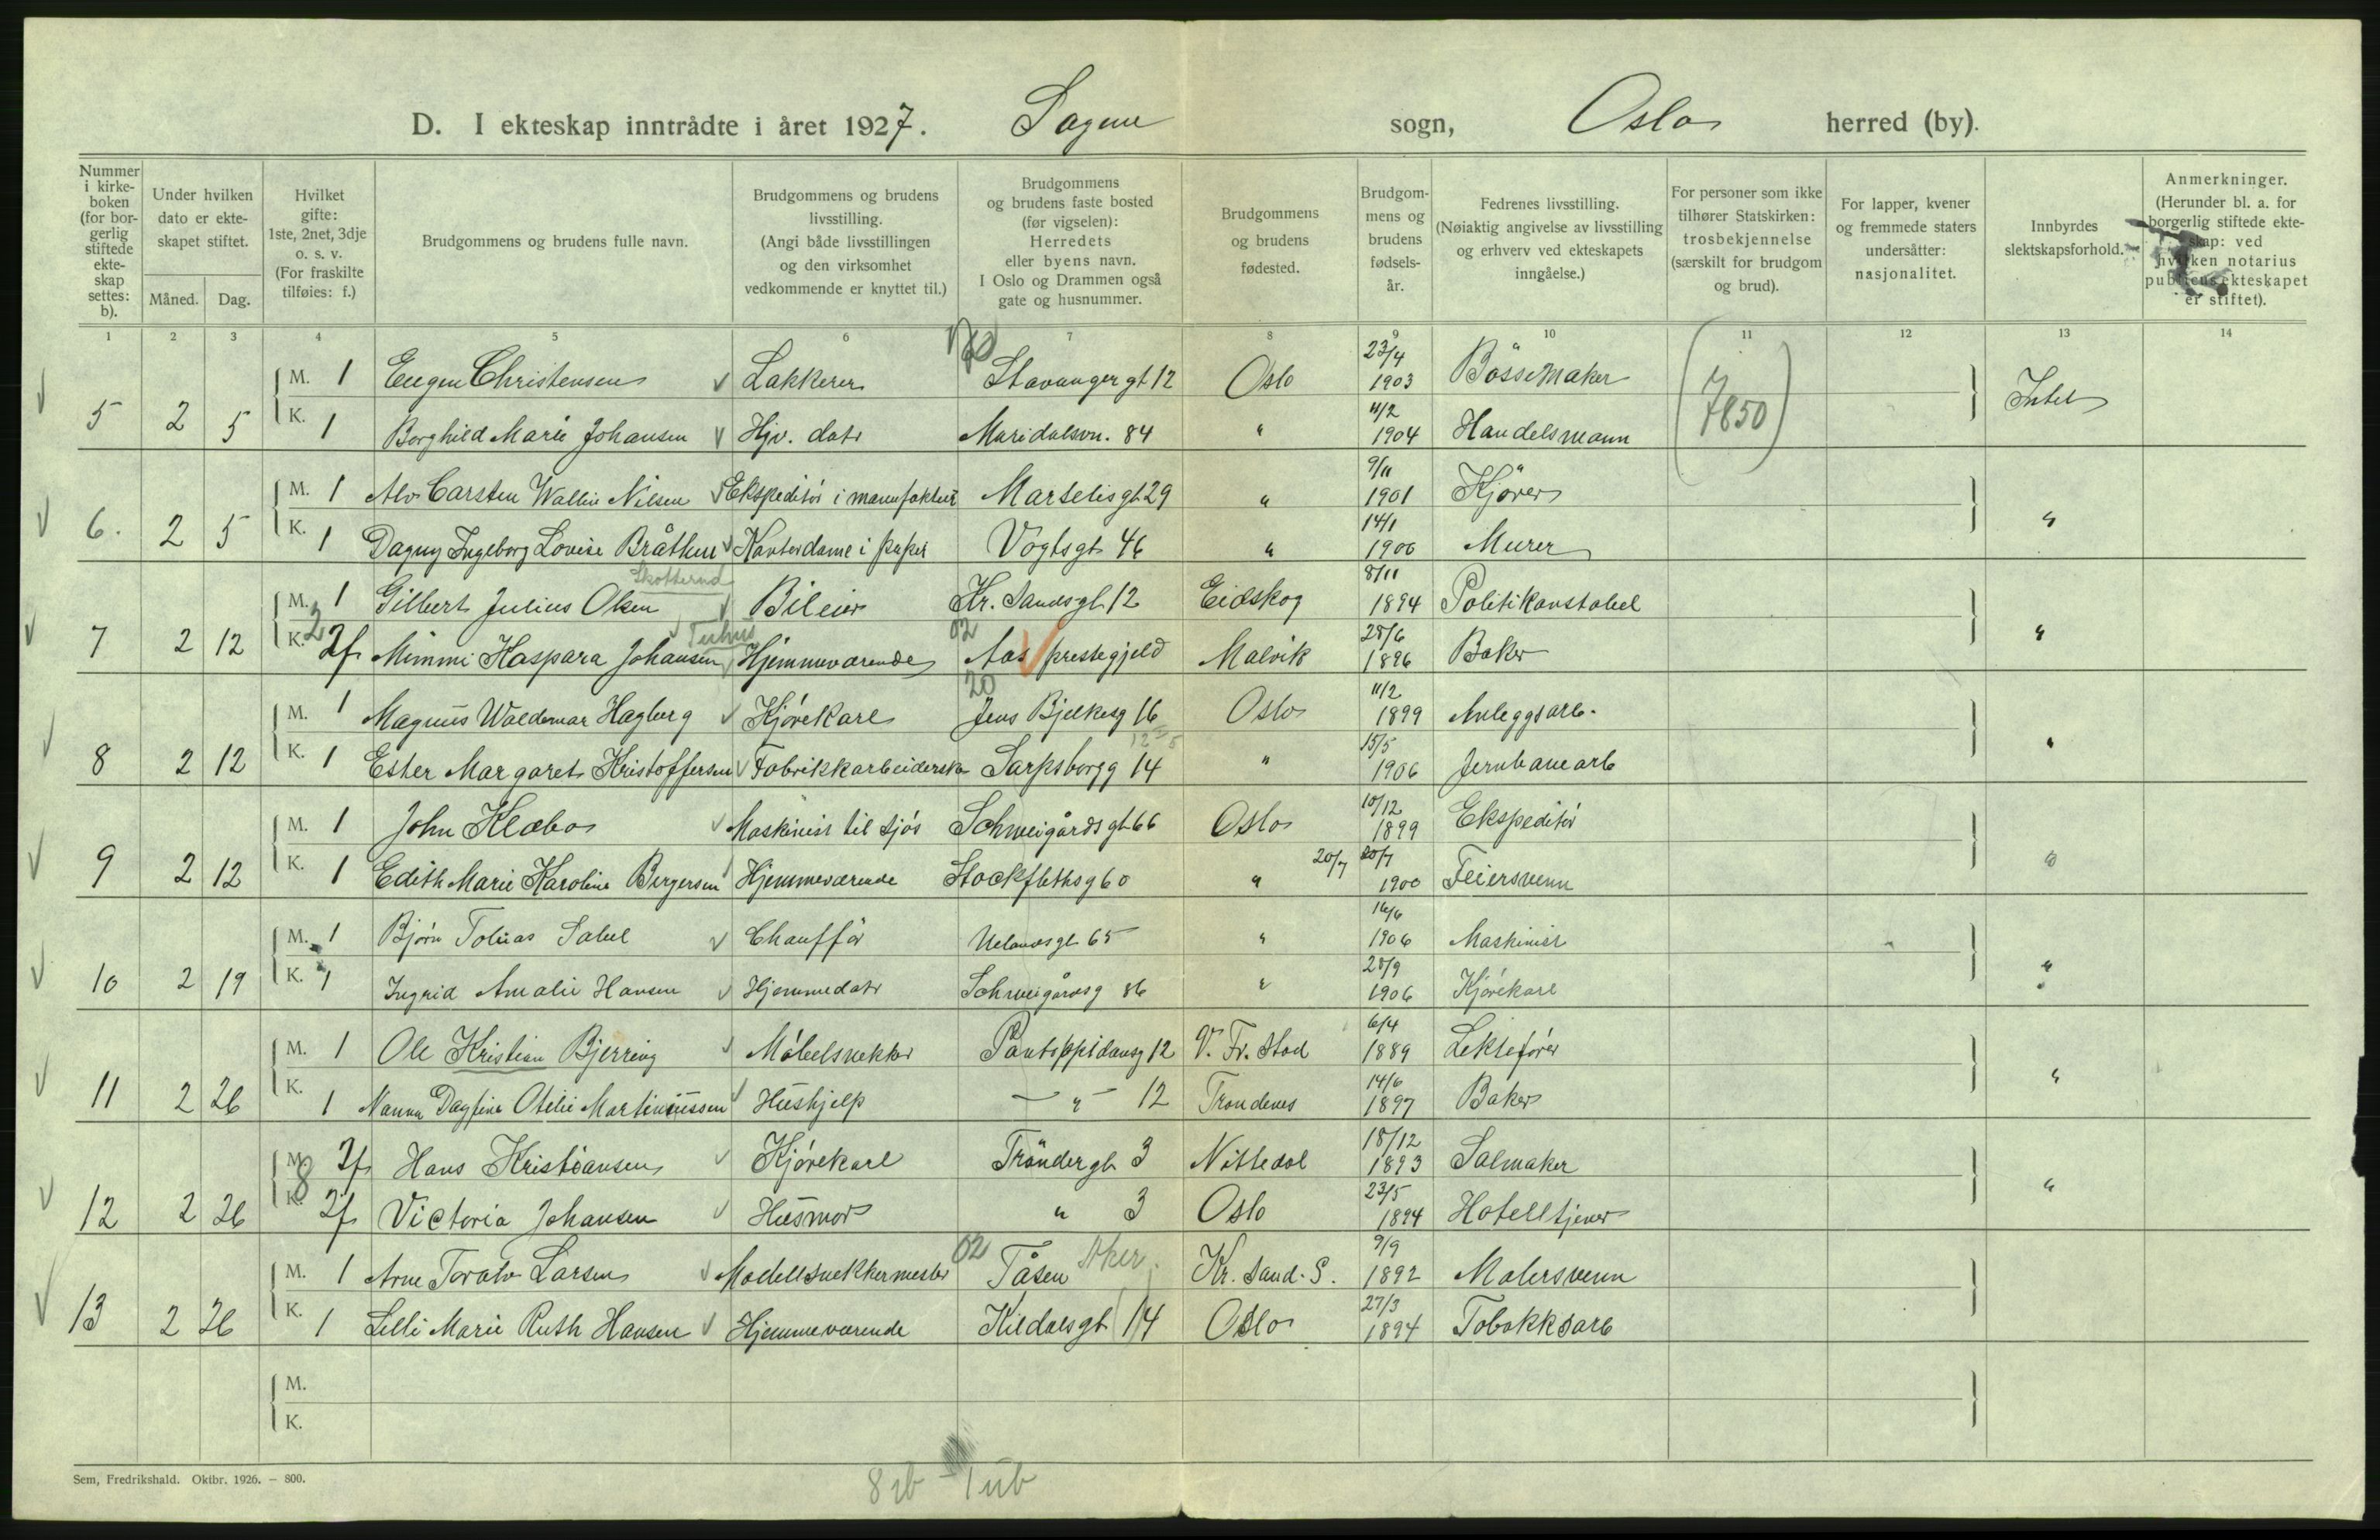 D. I ekteskap inntrådte i året 1927. Sagene sogn, Oslo herred (by).
Nummer i kirkeboken (for borgerlig stiftede ekteskap settes: b).
Under hvilken dato er ekteskapet stiftet.
Måned. Dag.
Hvilket gifte: 1ste, 2net, 3dje o. s. v. (For fraskilte tilføies: f.)
Brudgommens og brudens fulle navn.
Brudgommens og brudens livsstilling. (Angi både livsstillingen og den virksomhet vedkommende er knyttet til.)
Brudgommens og brudens faste bosted (før vigselen): Herredets eller byens navn. I Oslo og Drammen også gate og husnummer.
Brudgommens og brudens fødested.
Brudgommens og brudens fødselsår.
Fedrenes livsstilling. (Nøiaktig angivelse av livsstilling og erhverv ved ekteskapets inngåelse.)
For personer som ikke tilhører Statskirken: trosbekjennelse (særskilt for brudgom og brud).
For lapper, kvener og fremmede staters undersåtter: nasjonalitet.
Innbyrdes slektskapsforhold.
Anmerkninger. (Herunder bl. a. for borgerlig stiftede ekteskap: ved hvilken notarius publicus ekteskapet er stiftet).
1 2 3 4 5 6 7 8 9 10 11 12 13 14
M. 1 Eugen Christensen Lakkerer Stavangergt 12 Oslo 23/4 1903 Bössemaker
5 2 5 K. 1 Borghild Marie Johansen Hjv. datr Maridalsvn. 84 " 11/2 1904 Handelsmann (7850) Intet
M. 1 Alv Carsten Wallin Nilsen Ekspeditór i manufaktur Marselisgt 29 " 9/11 1901 Kjörer
6. 2 5 K. 1 Dagny Ingeborg Lovise Bråthen Kontordame i papir Vogtsgt 46 " 14/1 1906 Murer "
Skotterud
M. 1 Gilbert Julius Olsen Bileier Kr. Sandsgt 12 Eidskog 8/11 1894 Politikonstabel
Tuhus 02
7 2 12 K. 2 2f Mimmi Kaspara Johansen Hjemmeværende Aas prestegjeld Malvik 28/6 1896 Baker "
20
M. 1 Magnus Waldemar Hagberg Kjórekarl Jens Bjelkesg 16 Oslo 11/2 1899 Anleggsarb.
8 2 12 K. 1 Ester Margaret Kristoffersen Fabrikkarbeiderske Sarpsborgg 14 " 15/5 1906 Jernbanearb "
M. 1 John Klæbo Maskinist til sjós Schweigårdsgt 66 Oslo 10/12 1899 Ekspeditór
9 2 12 K. 1 Edith Marie Karoline Bergersen Hjemmeværende Stockflethsg 60 " 20/7 20/7 1900 Feiersvenn "
M. 1 Bjórn Tobias Sabel Chauffór Uelandsgt 65 " 16/6 1906 Maskinist
10 2 19 K. 1 Ingrid Amalie Hansen Hjemmedatr Schweigårdsg 86 " 28/9 1906 Kjórekarl "
M. 1 Ole Kristian Bjerring Móbelsnekker Pontoppidansg 12 V. Fr. Stad 6/4 1889 Lektefórer
11 2 26 K. 1 Nanna Dagfine Otelie Martiniussen Hushjelp — " — 12 Trondenes 14/6 1897 Baker "
M. 2f Hans Kristiansen Kjórekarl Tröndergt 3 Nittedal 18/12 1893 Salmaker
12 2 26 K. 8 2f Victoria Johansen Husmor " 3 Oslo 23/5 1894 Hotelltjener "
M. 1 Arne Toralv Larsen Modellsnekkermester 02 Tåsen Aker. Kr. Sand. S. 9/9 1892 Malersvenn
13 2 26 K. 1 Lelli Marie Ruth Hansen Hjemmeværende Kildalsgt 14 Oslo 27/3 1894 Tobakksarb
M.
K.
Sem, Fredrikshald. Oktbr. 1926. — 800.
8 ib – 1 ub